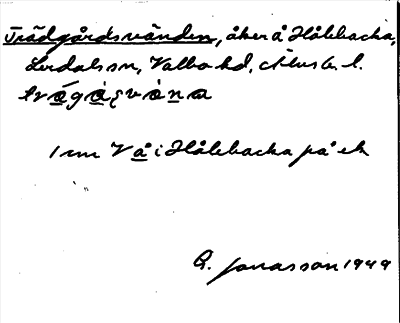 Trädgårdsvänden, åker å Hålebacka,
Lerdals sn, Valbo hd, Älvsb. l.
trǡgạ̊ʂvȧna
1 nr V å i Hålebacka på ek
G. Jonasson 1949